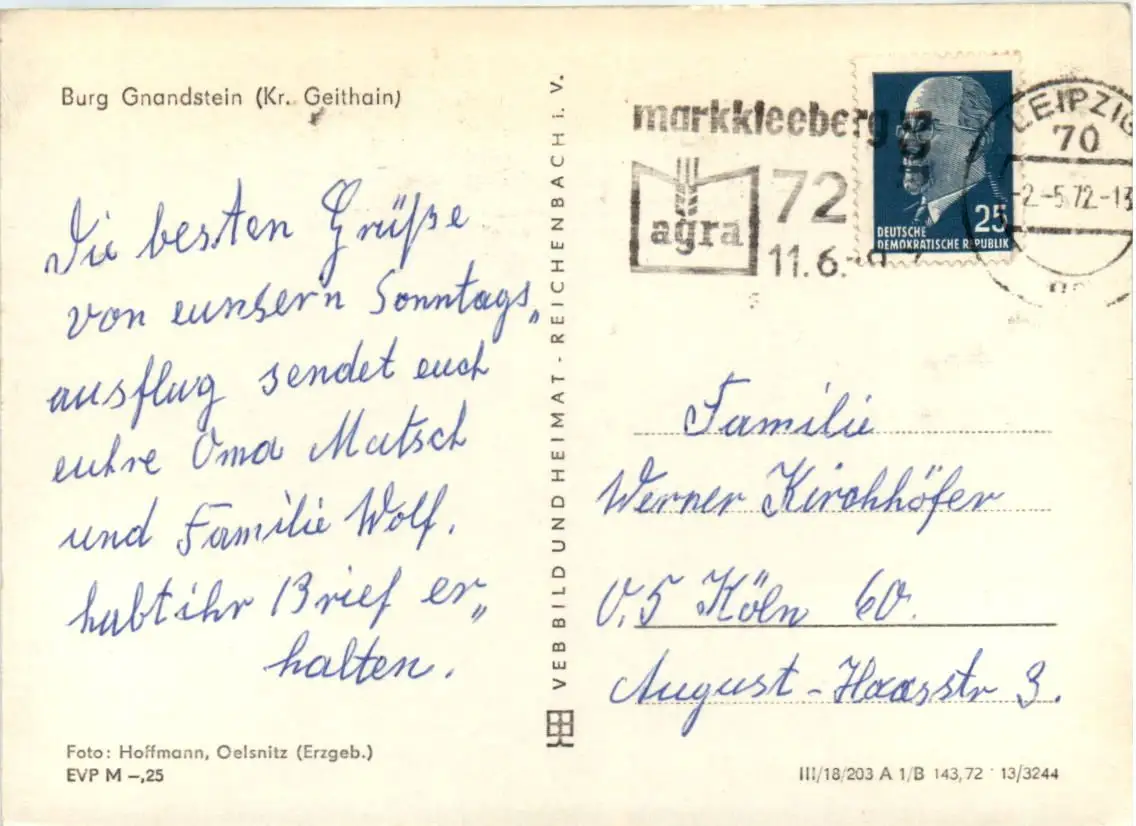 Burg Gnandstein (Kr. Geithain)
Die besten Grüße
von eunsern Sonntags„
ausflug sendet euch
euhre Oma Matsch
und Familie Wolf.
habt ihr Brief er„
halten.
Foto: Hoffmann, Oelsnitz (Erzgeb.)
EVP M –,25
VEB BILD UND HEIMAT - REICHENBACH i. V.
markkleeberg
agra
72
11.6.-
DEUTSCHE
DEMOKRATISCHE REPUBLIK
25
LEIPZIG
70
-2.-5.72.-13
Familie
Werner Kirchhöfer
V.5 Köln 60.
August-Haasstr 3.
III/18/203 A 1/B 143,72 13/3244